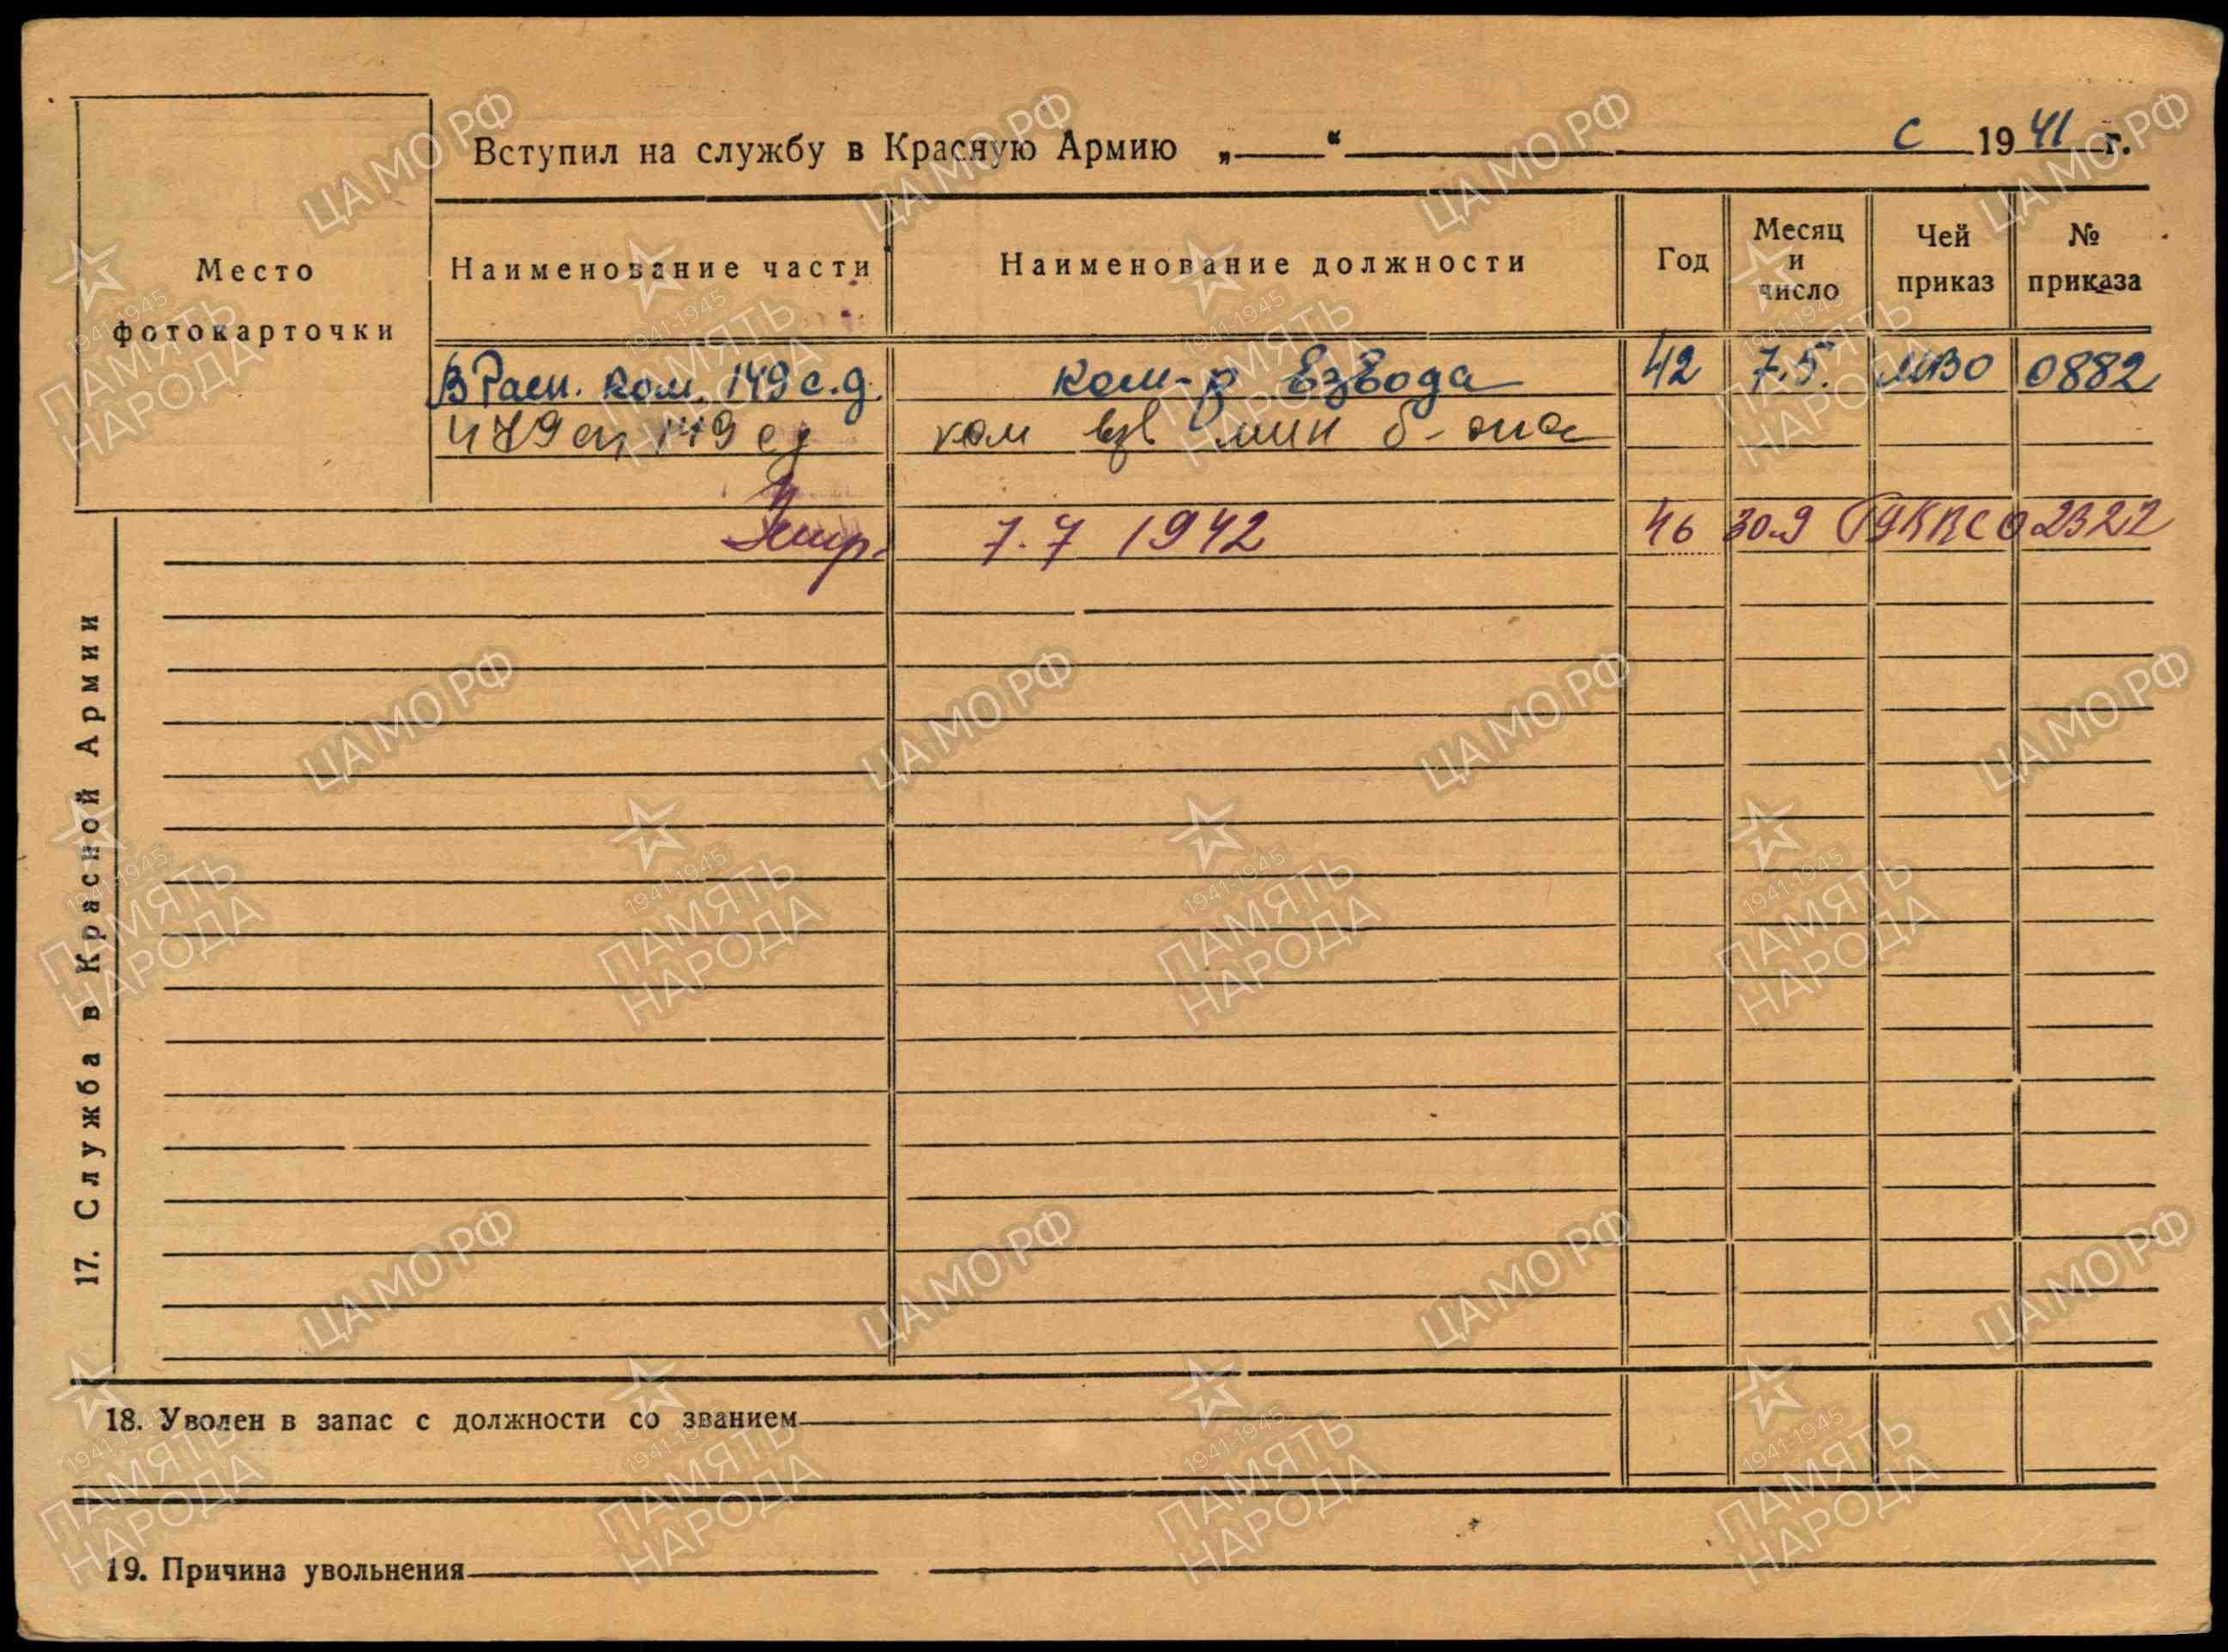 Вступил на службу в Красную Армию „___“ с 1941 г.
Место фотокарточки
Наименование части Наименование должности Год Месяц и число Чей приказ № приказа
В Расп. ком. 149 с.д. ком-р взвода 42 7.5. МВО 0882
479 сп 149 сд ком взв мин б-она
7.7 1942 46 30.9 02322
17. Служба в Красной Армии
18. Уволен в запас с должности со званием
19. Причина увольнения
ЦАМО РФ
1941-1945
ПАМЯТЬ
НАРОДА